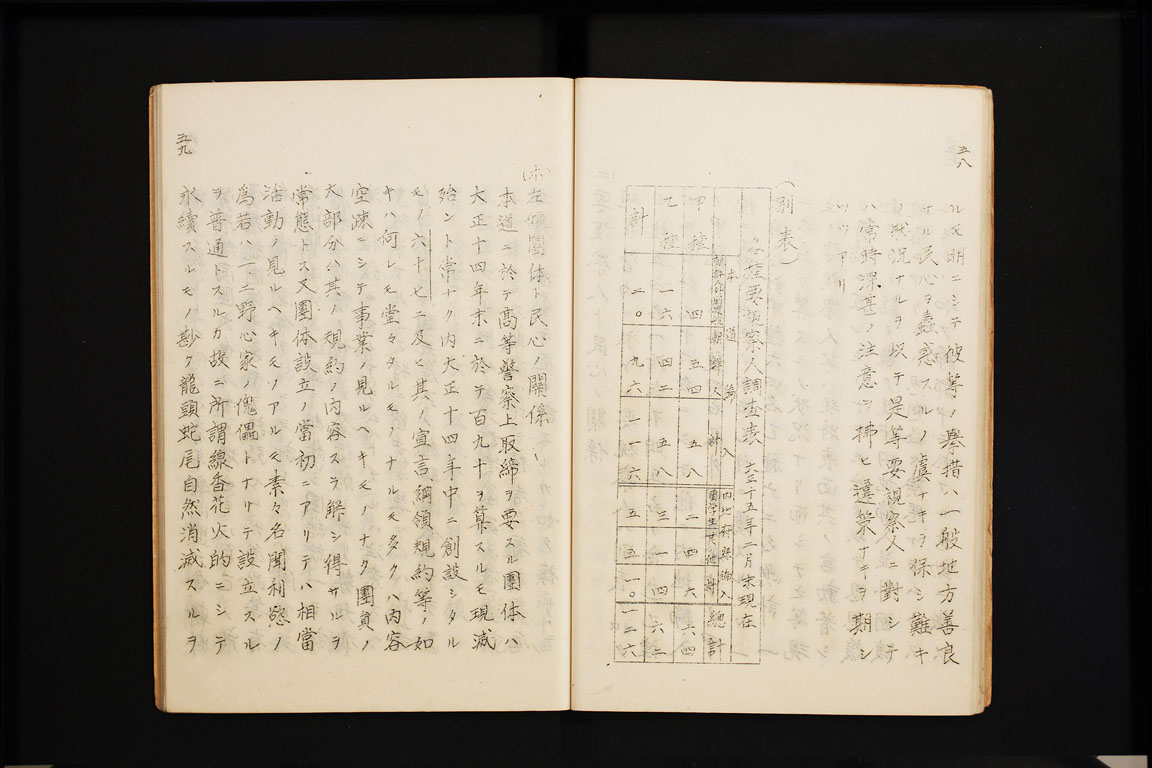 五八
ルヌ明ニシテ彼等ノ擧措ハ一般地方善良
ナル民心ヲ蠱惑スルノ虞ナキヲ保シ難キ
狀況ナルヲ以テ是等要視察人ニ對シテ
ハ常時深甚ノ注意ヲ拂ヒ違策ナキヲ期シ
ツツアリ
(別表)
各種要視察人調査表 大正十五年二月末現在
本道 鮮人 計 四他府縣 鮮人 留學生 其他 計 總計
甲種 四 五四 五八 二 四 六 六四
乙種 一六 四二 五八 三 一 四 六二
計 二〇 九六 一一六 五 五 一〇 一二六
五九
(ホ)左傾團体ト民心ノ關係
本道ニ於テ高等警察上取締ヲ要スル團体ハ
大正十四年末ニ於テ百九十ヲ算スルモ現減
殆ント常ナク内大正十四年中ニ創設シタル
モノ六十七ニ及ヒ其ノ宣言綱領規約等ノ如
キハ何レモ堂々タルモノナルモ多クハ内容
空疎ニシテ事業ノ見ルヘキモノナク團員ノ
大部分ハ其ノ規約ノ内容スラ解シ得サルヲ
常態トス又團体設立ノ當初ニアリテハ相當
活動ノ見ルヘキモノアルモ素々名聞利慾ノ
爲若ハ一、二野心家ノ傀儡トナリテ設立スル
ヲ普通トスルカ故ニ所謂線香花火的ニシテ
永續スルモノ尠ク龍頭蛇尾自然消滅スルヲ